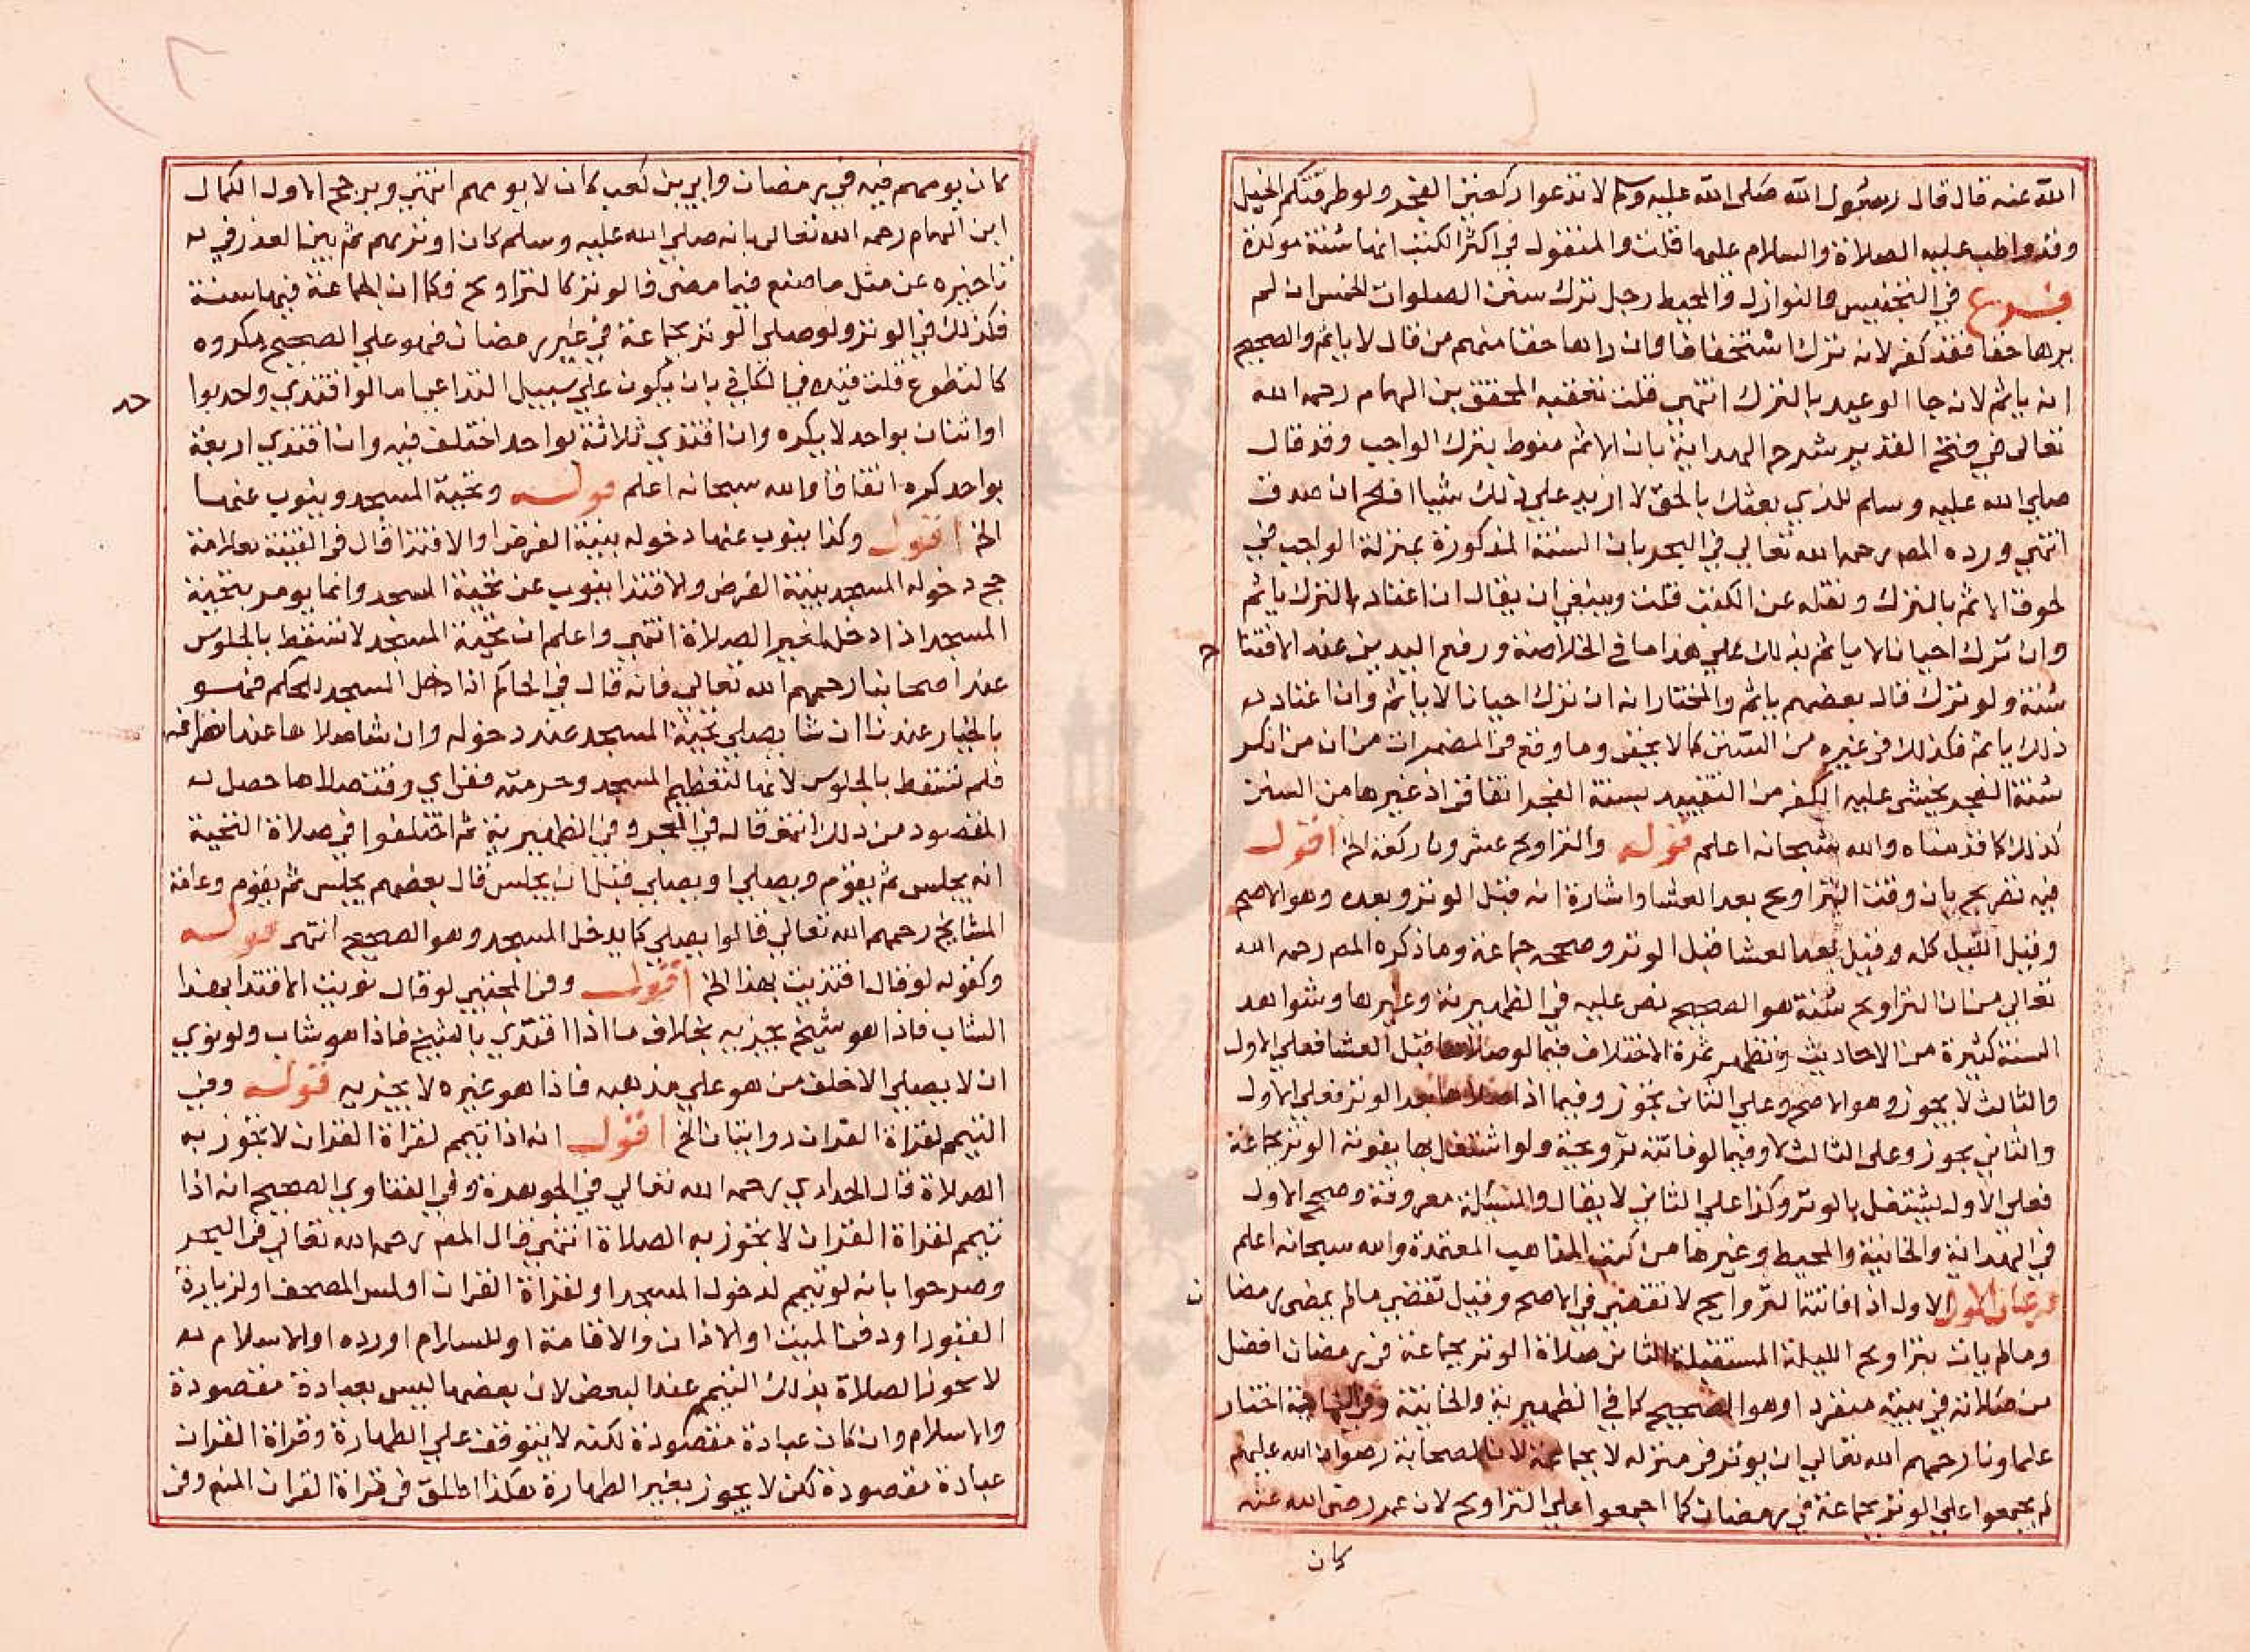 الله عنه قال قال رسول الله صلى الله عليه وسلم لا تدعوا ركعتي الفجر ولو طرقتكم الخيل
وقد واظب عليه الصلاة والسلام عليها قلت والمنقول في اكثر الكتب انها سنة موكدة
فروع في التجنيس والنوازل والمحيط رجل ترك سنن الصلوات الخمس ان لم
يرها حقا فقد كفر لانه ترك استخفافا وان راها حقا منهم من قال لا ياثم والصحيح
انه ياثم لانه جا الوعيد بالترك انتهى قلت تعقبه المحقق بن الهمام رحمه الله
تعالى في فتح القدير شرح الهداية بان الاثم منوط بترك الواجب وقد قال
صلي الله عليه وسلم للذي بعثك بالحق لا ازيد علي ذلك شيا افلح ان صدق
انتهي ورده المص رحمه الله تعالي في البحر بان السنة المذكورة بمنزلة الواجب في
لحوق الاثم بالترك ونقله عن الكشف قلت وينبغي ان يقال ان اعتاد بالترك ياثم
وان ترك احيانا لا ياثم بذلك علي هذا ما في الخلاصة ورفع اليدين عند الافتتا ح
سنة ولو ترك قال بعضهم ياثم والمختار انه ان ترك احيانا لا ياثم وان اعتاد له
ذلك ياثم فكذلك في غيره من السنن كما لا يخفى وما وقع في المضمرات من ان من انكر
سنة الفجر يخشى عليه الكفر من التقييد بسنة الفجر اتفاقي اذ غيرها من السنن
كذلك كما قدمناه والله سبحانه اعلم قوله والتراويح عشرون ركعة الخ اقول
فيه تصريح بان وقت التراويح بعد العشا واشارة انه قبل الوتر وبعده وهو الاصح
وقيل الليل كله وقيل بعد العشا قبل الوتر وصححه جماعة وما ذكره المص رحمه الله
تعالي من ان التراويح سنة هو الصحيح نص عليه في الظهيرية وغيرها وشواهد
السنة كثيرة من الاحاديث وتظهر ثمرة الاختلاف فيما لو صلاها قبل العشا فعلي الاول
والثالث لا يجوز وهو الاصح وعلي الثاني يجوز وفيما اذا صلاها بعد الوتر فعلي الاول
والثاني يجوز وعلى الثالث لا وفيما لو فاتته ترويحة ولو اشتغل بها يفوته الوتر بجماعة
فعلي الاول يشتغل بالوتر وكذا علي الثاني لا يقال والمسئلة معروفة وصحح الاول
في الهداية والخانية والمحيط وغيرها من كتب المذاهب المعتمدة والله سبحانه اعلم
فرعان الاول الاول اذا فاتته التراويح لا تقضي في الاصح وقيل تقضي مالم يمضي رمضا ن
ومالم يات بتراويح الليلة المستقبلة الثاني صلاة الوتر بجماعة في رمضان افضل
من صلاته في بيته منفردا وهو الصحيح كما في الظهيرية والخانية وفي النهاية اختار
علماونا رحمهم الله تعالي ان يوتر في منزله لا بجماعة لان الصحابة رضوان الله عليهم
لم يجمعوا علي الوتر بجماعة في رمضان كما اجمعوا علي التراويح لان عمر رضي الله عنه
كان
كان يومهم فيه في رمضان وابي بن كعب كان لا يومهم انتهي ويرجح الاول الكمال
ابن الهمام رحمه الله تعالى بانه صلي الله عليه وسلم كان اوتر بهم ثم بين العذر في له
تاخيره عن مثل ما صنع فيما مضى فالوتر كالتراويح فكما ان الجماعة فيها سنة
فكذلك في الوتر ولو صلي الوتر بجماعة في غير رمضان فهو علي الصحيح مكروه
كالتطوع قلت قيده في الكافي بان يكون علي سبيل التداعي اما لو اقتدي واحد بوا حد
او اثنان بواحد لا يكره وان اقتدي ثلاثة بواحد اختلف فيه وان اقتدي اربعة
بواحد كره اتفاقا والله سبحانه اعلم قوله وتحية المسجد وينوب عنها
الخ اقول وكذا ينوب عنها دخوله بنية الفرض او الاقتدا قال في القنية بعلامة
جح دخوله المسجد بنية الفرض والاقتدا ينوب عن تحية المسجد وانما يومر بتحية
المسجد اذا دخل لغير الصلاة انتهي واعلم ان تحية المسجد لا تسقط بالجلوس
عند اصحابنا رحمهم الله تعالي فانه قال في الحاكم اذا دخل المسجد للحكم فهو
بالخيار عندنا ان شا يصلي تحية المسجد عند دخوله وان شا صلاها عند انصرافه
فلم تسقط بالجلوس لانها لتعظيم المسجد وحرمته ففي اي وقت صلاها حصل له
المقصود من ذلك انتهى قاله في البحر وفي الظهيرية ثم اختلفوا في صلاة التحية
انه يجلس ثم يقوم ويصلي او يصلي قبل ان يجلس قال بعضهم يجلس ثم يقوم وعامة
المشايخ رحمهم الله تعالي قالوا يصلي كما يدخل المسجد وهو الصحيح انتهى قوله
وكقوله لو قال اقتديت بهذا الخ اقول وفي المجتبي لو قال نويت الاقتدا بهذا
الشاب فاذا هو شيخ يجزيه بخلاف ما اذا اقتدي بالشيخ فاذا هو شاب ولو نوي
ان لا يصلي الا خلف من هو علي مذهبه فاذا هو غيره لا يجزيه قوله وفي
التيمم لقراة القران روايتان الخ اقول انه اذا تيمم لقراة القران لا يجوز به
الصلاة قال الحدادي رحمه الله تعالي في الجوهرة وفي الفتاوي الصحيح انه اذا
تيمم لقراة القران لا يجوز به الصلاة انتهي قال المص رحمه الله تعالي في البحر
وصرحوا بانه لو تيمم لدخول المسجد او لقراة القران او لمس المصحف او لزيارة
القبور او دفن الميت او الاذان والاقامة او للسلام او رده او الاسلام له
لا تجوز الصلاة بذلك التيمم عند البعض لان بعضها ليس بعبادة مقصودة
والاسلام وان كان عبادة مقصودة لكنه لا يتوقف علي الطهارة وقراة القران
عبادة مقصودة لكن لا يجوز بغير الطهارة هكذا اطلق في قراة القران المنع وفي